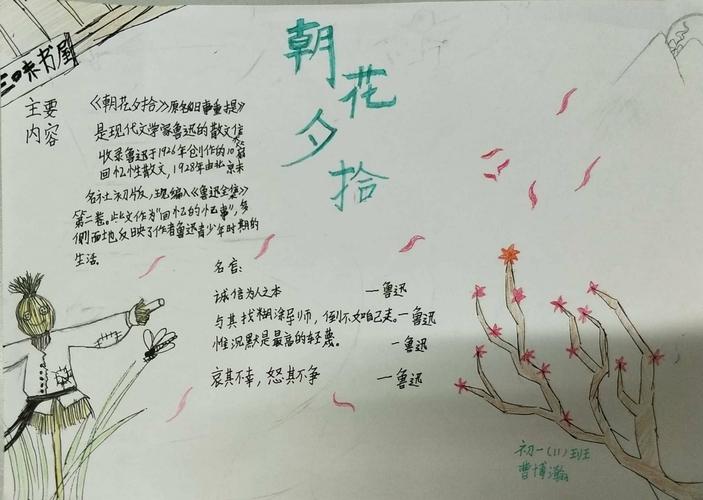 三味书屋
朝花夕拾
主要
内容
《朝花夕拾》原名《旧事重提》
是现代文学家鲁迅的散文集
收录鲁迅于1926年创作的10篇
回忆性散文,1928年由北京未
名社初版,现编入《鲁迅全集》
第二卷。此文作为"回忆的记事",多
侧面地反映了作者鲁迅青少年时期的
生活。
名言:
诚信为人之本 —鲁迅
与其找糊涂导师,倒不如自己走。—鲁迅
惟沉默是最高的轻蔑。 —鲁迅
哀其不幸,怒其不争 —鲁迅
初一(11)班
曹博瀚